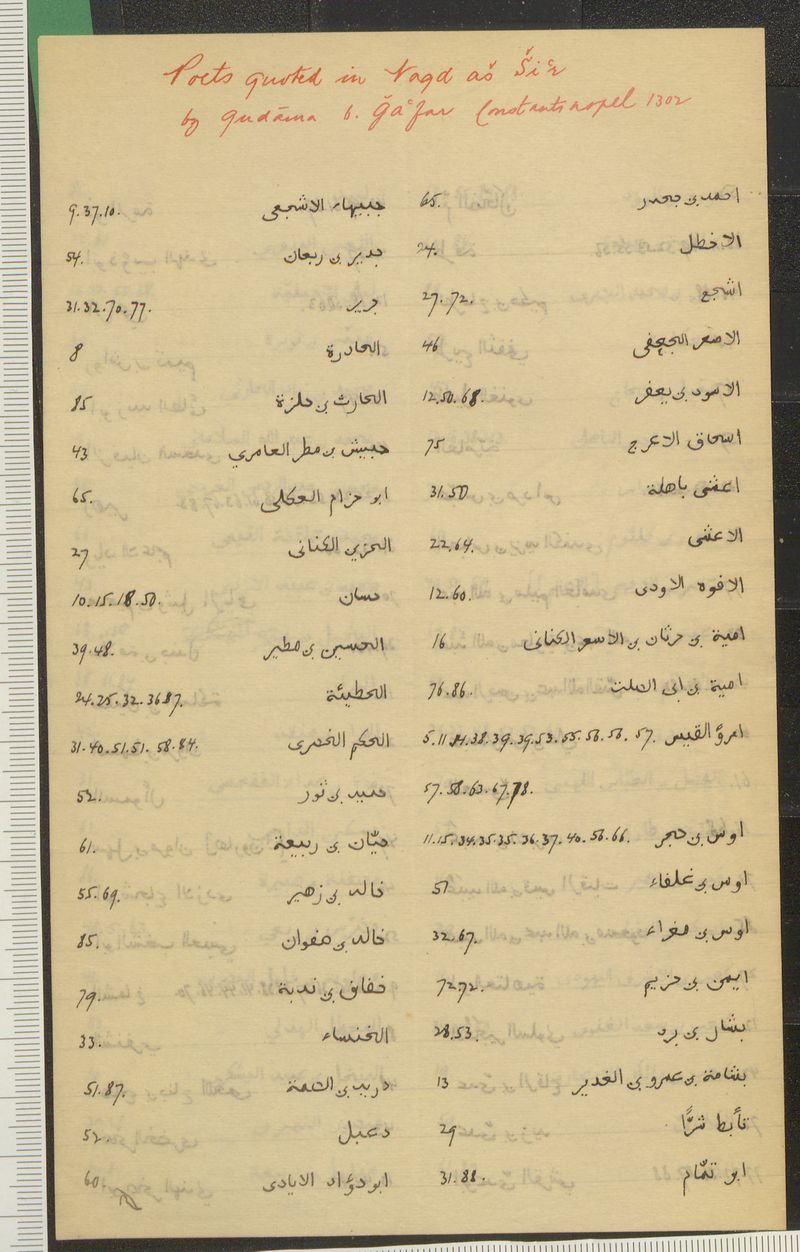 Poets quoted in Naqd aš Ši'r
by Qudāma b. Ǧa'far Constantinopel 1302
احمد بن جحدر 65.
الاخطل 24.
اشجع 27.72.
الاسعر الجعفى 46
الاسود بن يعفر 12.50.68.
اسحاق الاعرج 75
اعشى باهلة 31.50
الاعشى 22.64.
الافوه الاودى 12.60.
امية بن حرثان بن الاسعر الكنانى 16
امية بن ابى الصلت 76.86.
امرؤ القيس 5.11.14.38.39.39.53.55.56.56.57.
57.58.63.67.78.
اوس بن حجر 11.15.34.35.35.36.37.40.56.66.
اوس بن غلفاء 51
اوس بن مغراء 32.67.
ايمن بن خزيم 72.72.
بشار بن برد 28.53.
بشامة بن عمرو بن الغدير 13
تأبط شرًّا 29
ابو تمّام 31.88.
جبيهاء الاشجعى 9.37.10.
جدير بن ربعان 54.
جرير 31.32.70.77.
الحادرة 8
الحارث بن حلزة 85
حبيش بن مطر العامري 43
ابو حزام العكلى 65.
الحزين الكنانى 27
حسان 10.15.18.50.
الحسين بن مطير 39.48.
الحطيئة 24.25.32.36 87.
الحكم الخضرى 31.40.51.51.58.84.
حميد بن ثور 52.
حيّان بن ربيعة 61.
خالد بن زهير 55.69.
خالد بن صفوان 85.
خفاف بن ندبة 79.
الخنساء 33.
دريد بن الصمة 51.87.
دعبل 52.
ابو دؤاد الايادى 60.